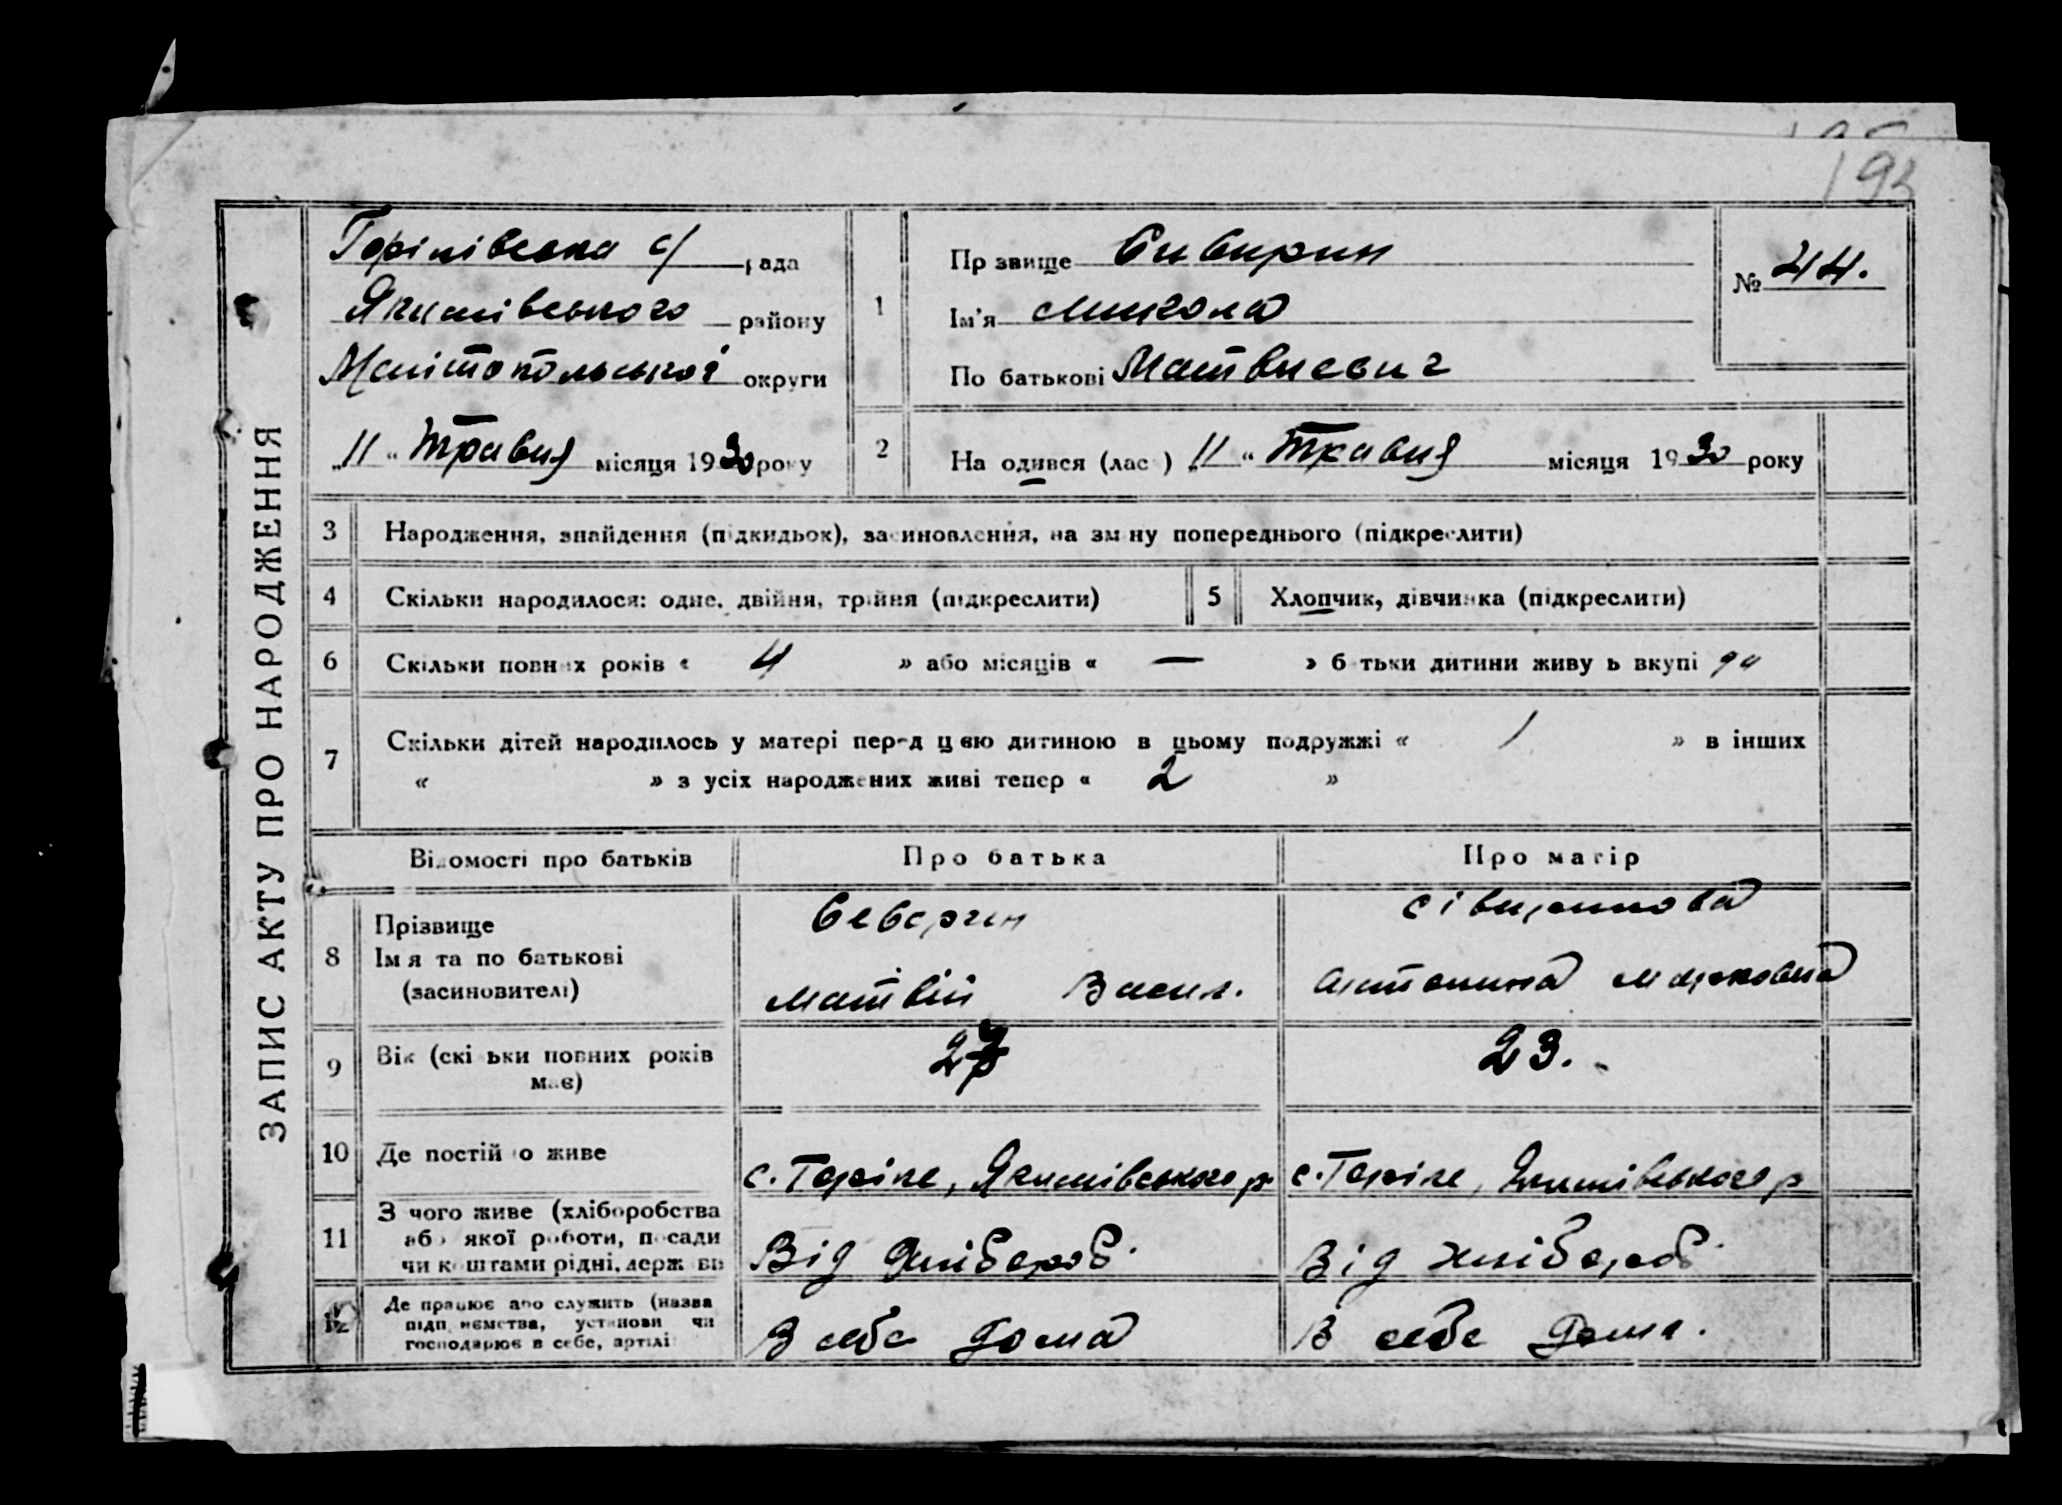 193
ЗАПИС АКТУ ПРО НАРОДЖЕННЯ
Горілівська с/рада
Якимівського району
Мелітопольської округи
„11“ Травня місяця 1930 року
1
Прзвище Сиверин
Ім'я Микола
По батькові Матвиевич
№ 44.
2
На одився (лас ) „11“ Травня місяця 1930 року
3 Народження, знайдення (підкидьок), засиновлення, на зміну попереднього (підкреслити)
4 Скільки народилося: одне, двійня, трійня (підкреслити)
5 Хлопчик, дівчинка (підкреслити)
6 Скільки повних років « 4 » або місяців « — » батьки дитини живуь вкупі
7 Скільки дітей народилось у матері перед цією дитиною в цьому подружжі « 1 » в інших
« » з усіх народжених живі тепер « 2 »
Відомості про батьків
Про батька
Про матір
8
Прізвище
Імя та по батькові
(засиновителі)
Северин
Матвій Васил.
Антонина Марковна
9
Вік (скільки повних років
має)
23.
10 Де постійно живе
с. Горіле, Якимівського р.
с. Горіле, Якимівського р
11
З чого живе (хліборобства
або якої роботи, посади
чи коштами рідні, держави
Від хлібороб.
Від хлібороб.
12
Де працює або служить (назва
підприємства, установи чи
господарює в себе, артілі
В себе дома
В себе дома.